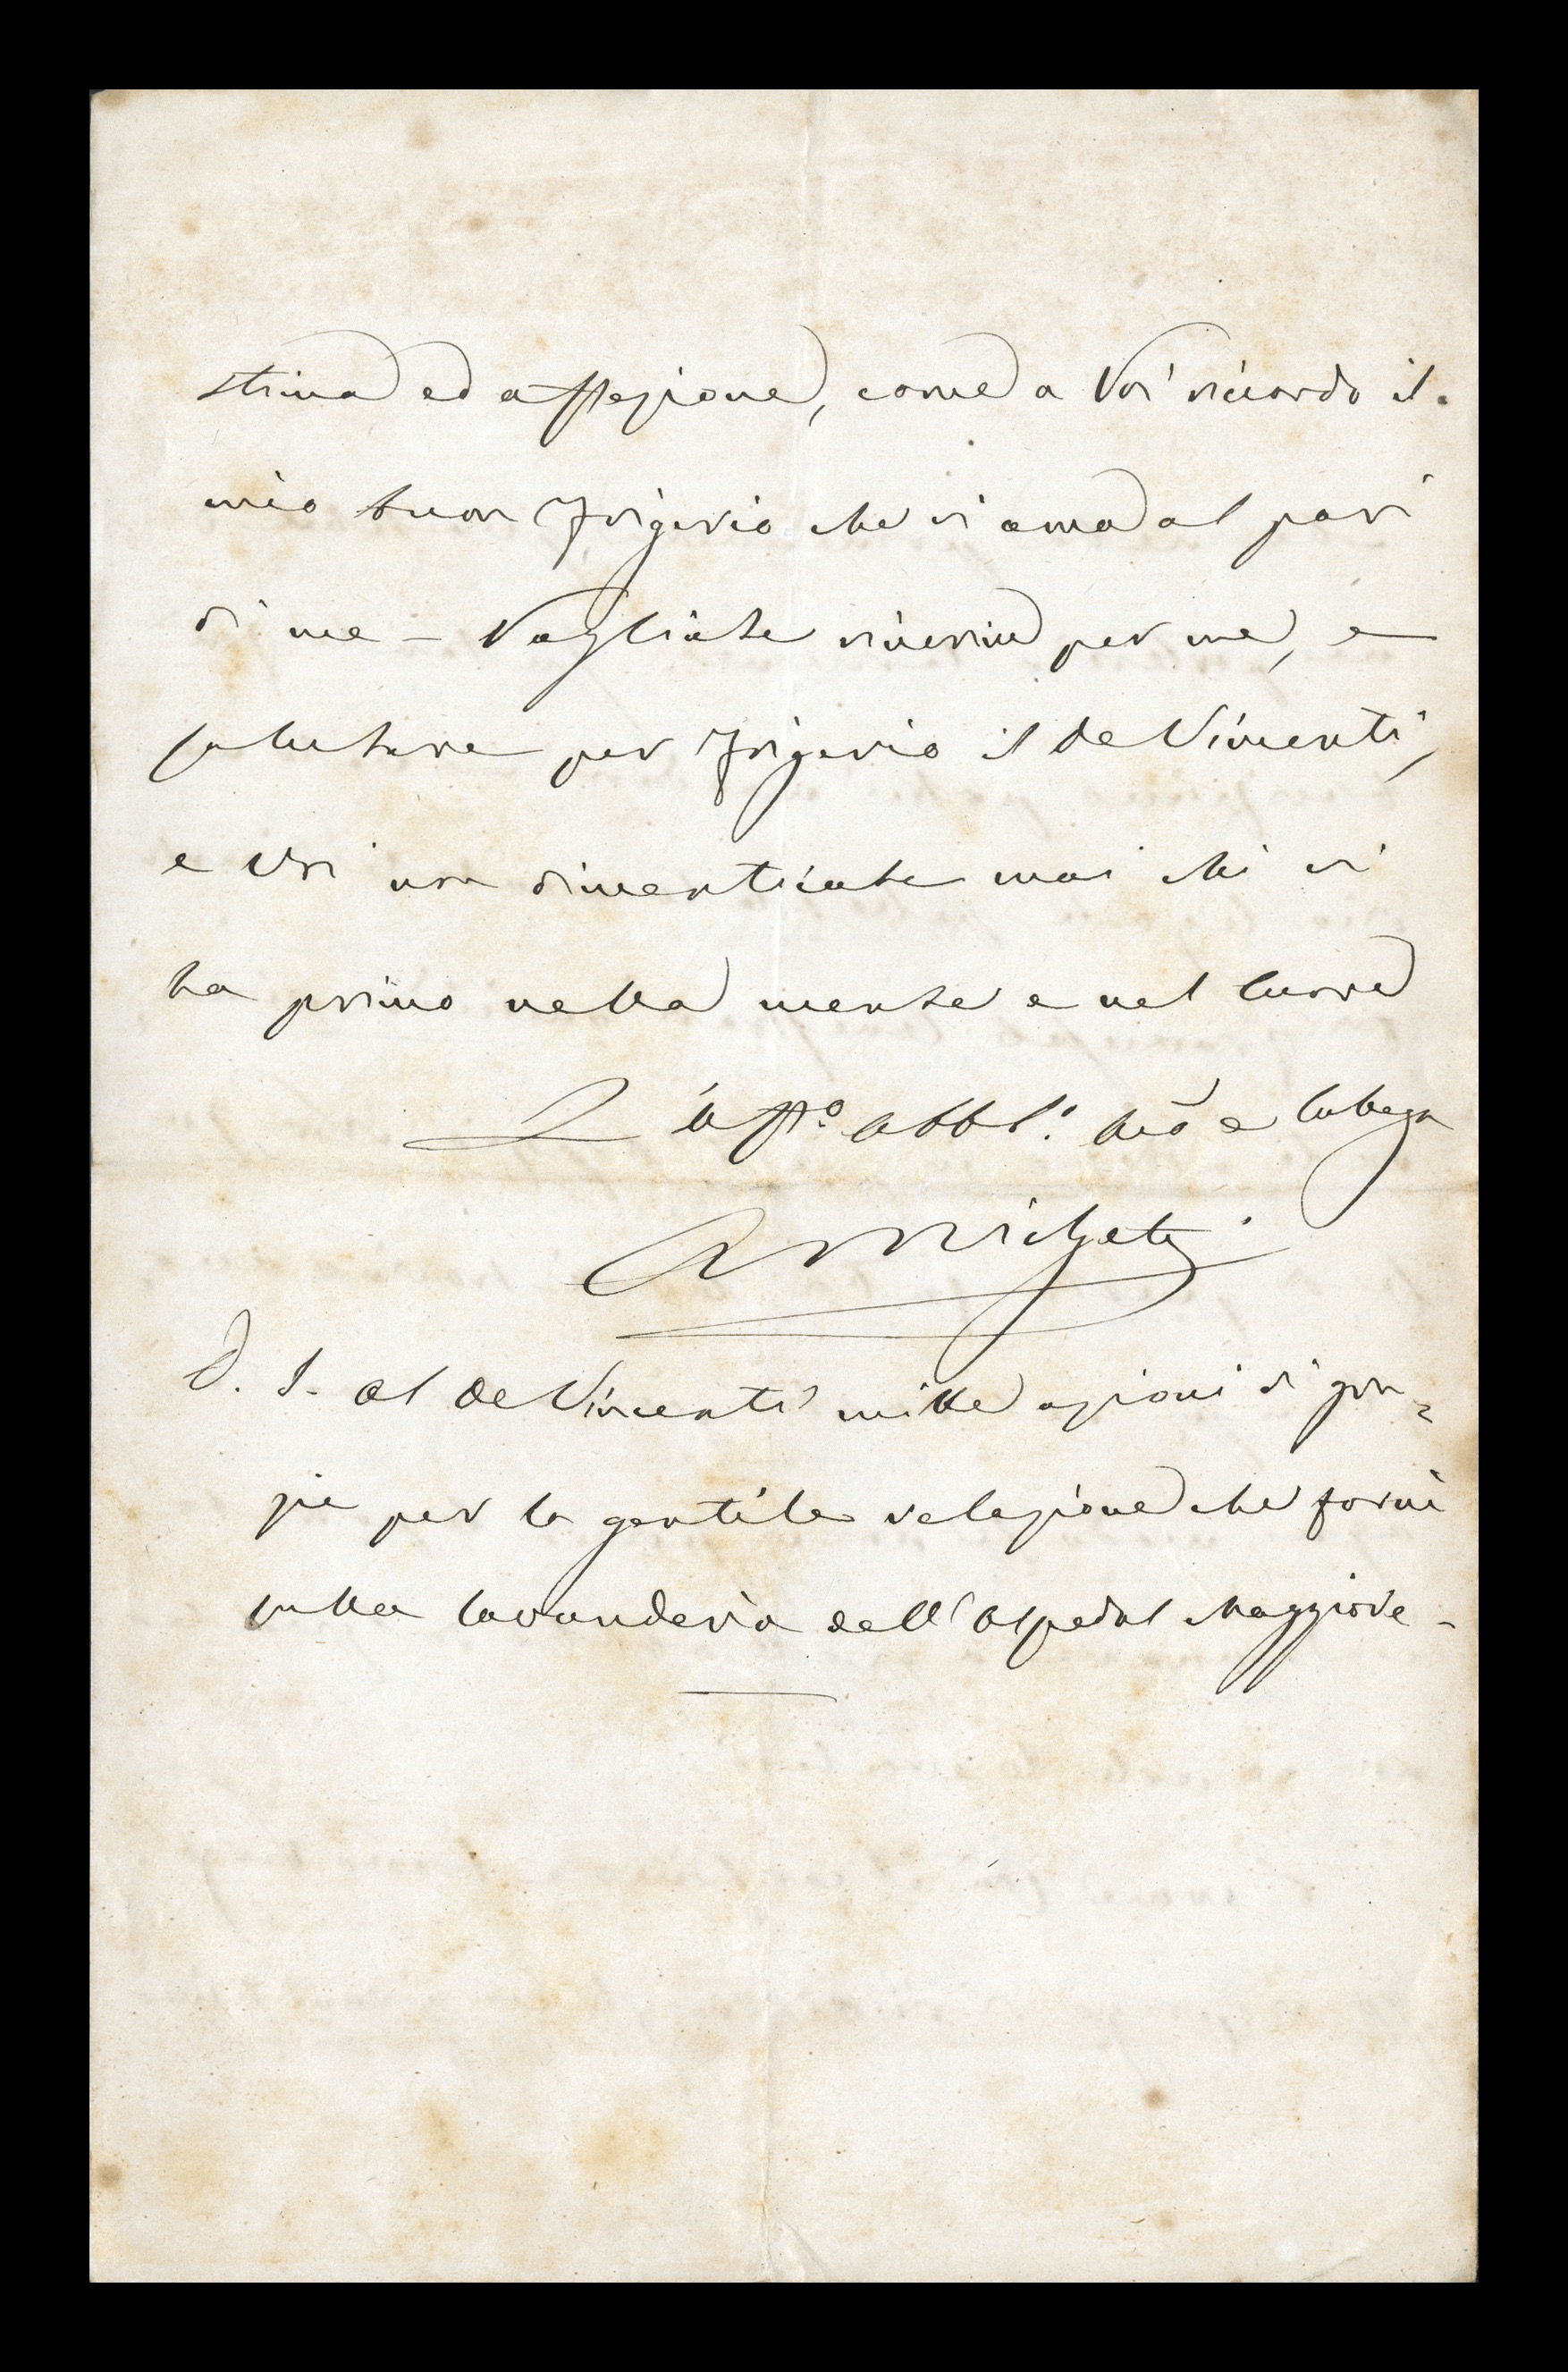 stima ed affezione, come a Voi ricordo il
mio buon Frigerio che vi ama al pari
di me – Vogliate riverire per me, e
salutare per Frigerio il De Vincenti,
e Voi non dimenticate mai chi vi
ha primo nella mente e nel cuore
L'aff.o obbl.o a͞ico e Collega
P. S. Al De Vincenti mille azioni di gra=
zie per la gentile relazione che fornì
sulla lavanderia dell'Ospedal Maggiore -